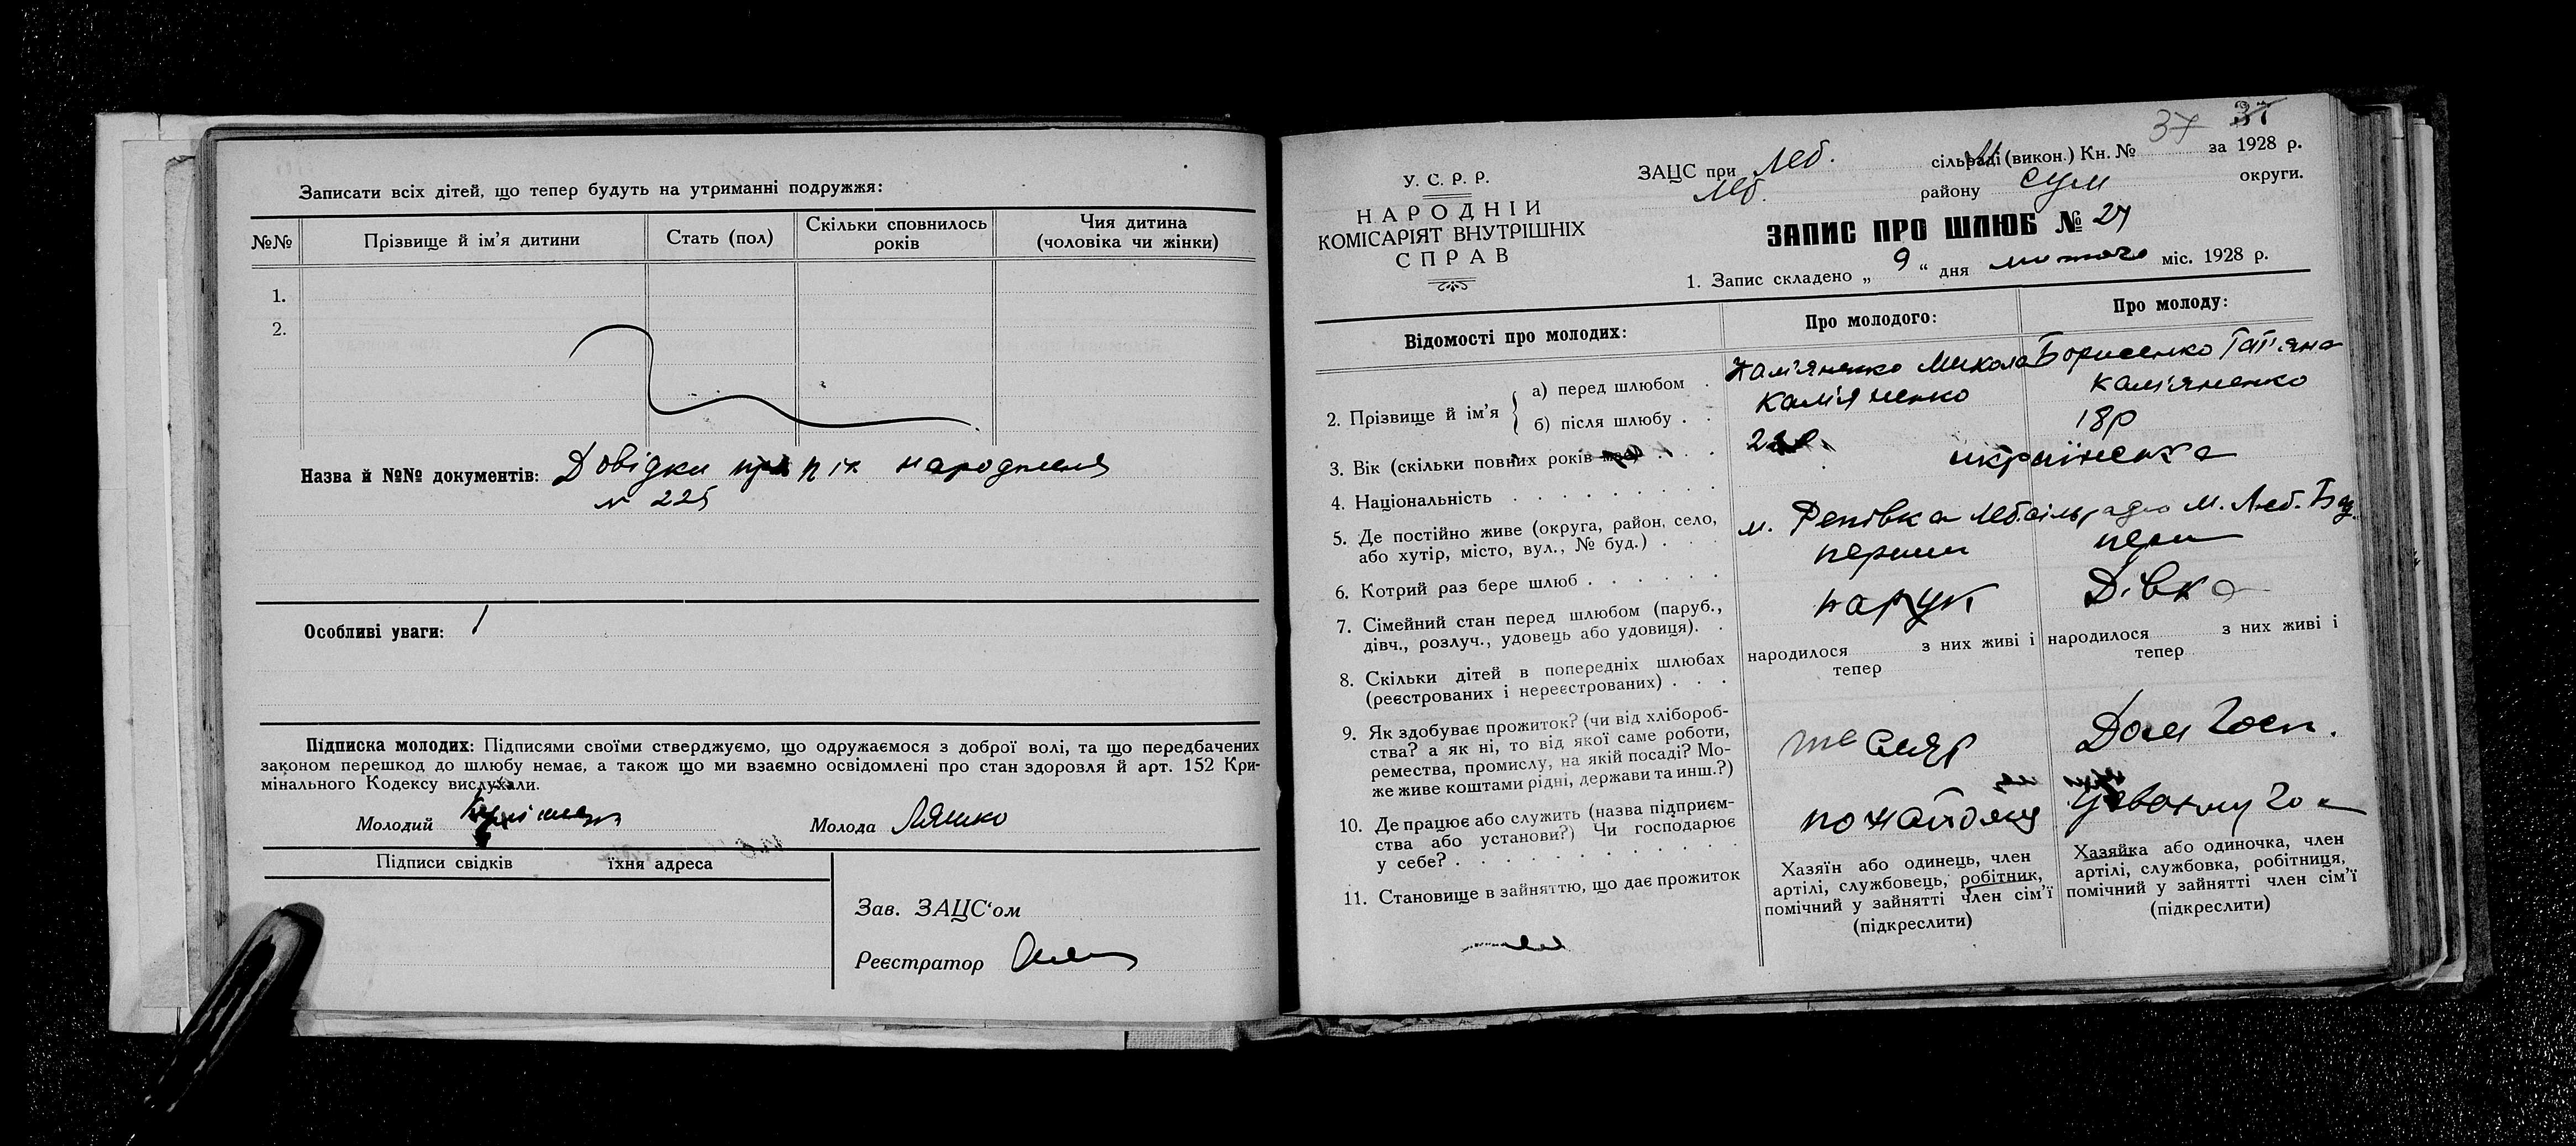 Записати всіх дітей, що тепер будуть на утриманні подружжя:
№№ Прізвище й ім'я дитини Стать (пол) Скільки сповнилось років Чия дитина (чоловіка чи жінки)
1.
2.
Назва й №№ документів: Довідки рік народження
№ 225
Особливі уваги:
Підписка молодих: Підписями своїми стверджуємо, що одружаємося з доброї волі, та що передбачених
законом перешкод до шлюбу немає, а також що ми взаємно освідомлені про стан здоровля й арт. 152 Кри-
мінального Кодексу вислухали.
Молодий Молода Ляшко
Підписи свідків їхня адреса
Зав. ЗАЦС'ом
Реєстратор
37 37
У. С. Р. Р.
НАРОДНІЙ
КОМІСАРІЯТ ВНУТРІШНІХ
СПРАВ
ЗАЦС при Леб. сільраді (викон.) Кн. № за 1928 р.
Леб. району Сум округи.
ЗАПИС ПРО ШЛЮБ № 27
1. Запис складено „ 9 “ дня лютого міс. 1928 р.
Відомості про молодих: Про молодого: Про молоду:
2. Прізвище й ім'я
а) перед шлюбом Кам'яненко Микола Борисенко Тат'яна
б) після шлюбу Кам'яненко Кам'яненко
3. Вік (скільки повних років має) 18р
4. Національність українська
5. Де постійно живе (округа, район, село,
або хутір, місто, вул., № буд.) м. Репівка м. Леб.
6. Котрий раз бере шлюб перший перш
7. Сімейний стан перед шлюбом (паруб.,
дівч., розлуч., удовець або удовиця). Дівка
8. Скільки дітей в попередніх шлюбах
(реєстрованих і нереєстрованих)
народилося з них живі і тепер
народилося з них живі і тепер
9. Як здобуває прожиток? (чи від хлібороб-
ства? а як ні, то від якої саме роботи,
ремества, промислу, на якій посаді? Мо-
же живе коштами рідні, держави та инш.?)
тесляр Дом госп.
10. Де працює або служить (назва підприєм-
ства або установи?) Чи господарює
у себе?
по найому
11. Становище в зайняттю, що дає прожиток
Хазяїн або одинець, член
артілі, службовець, робітник,
помічний у зайнятті член сім'ї
(підкреслити)
Хазяйка або одиночка, член
артілі, службовка, робітниця,
помічний у зайнятті член сім'ї
(підкреслити)